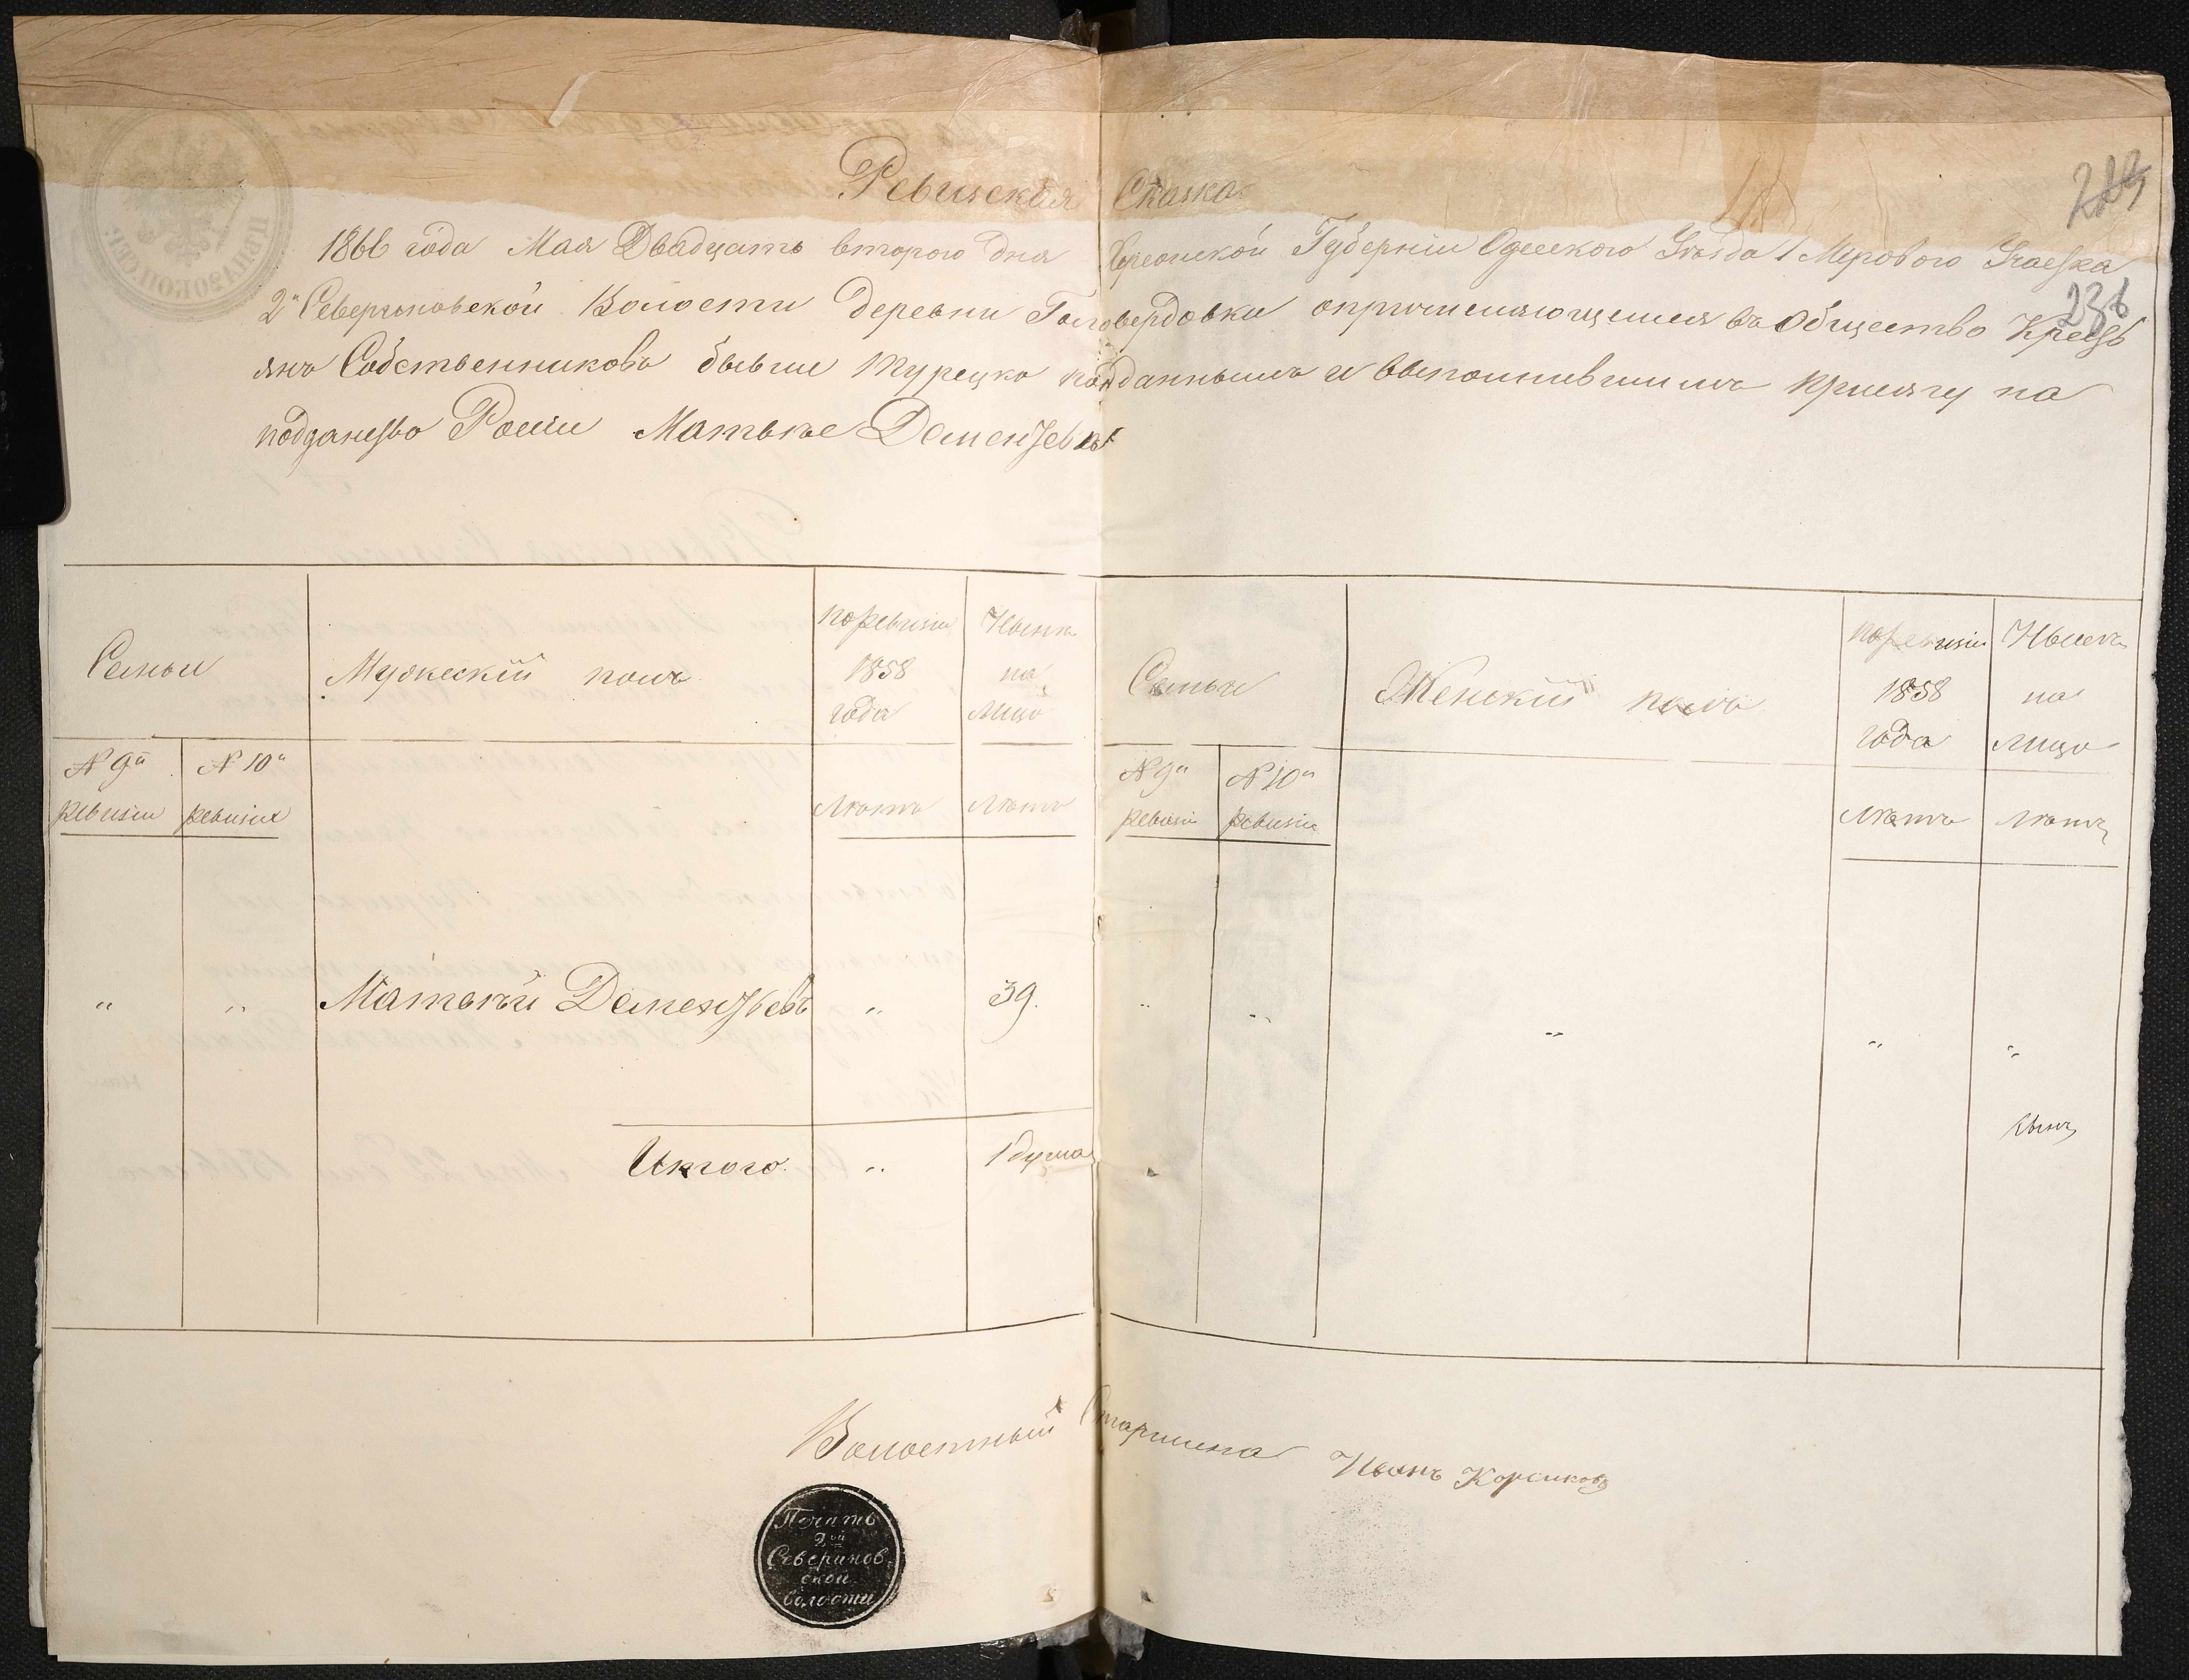 Ревизская Сказка
1866 года Мая Двадцать второго дня Херсонской Губерніи Одесского Уѣзда 1 Мирового Участка
2й Севериновской Волости деревни опричисляющемся въ Общество Кресть
янъ Собственниковъ бывше Турецко подданнымъ и выполнившимъ присягу на
подданство Росіи Матвѣе Дементьевѣ
236
Семьи
Мужескій полъ
По ревизіи 1858 года
Нынѣ на лицо
Семьи
Женскій полъ
По ревизіи 1858 года
Нынѣ на лицо
№ 9й ревизіи
№ 10й ревизіи
Лѣта
Лѣта
№ 9й ревизіи
№ 10й ревизіи
Лѣта
Лѣта
" " Матвѣй Дементьевъ " 39. " " " " "
Итого. " 1 душа
Волостный Старшина Иванъ
Печать
2ой
Северинов
ской
волости